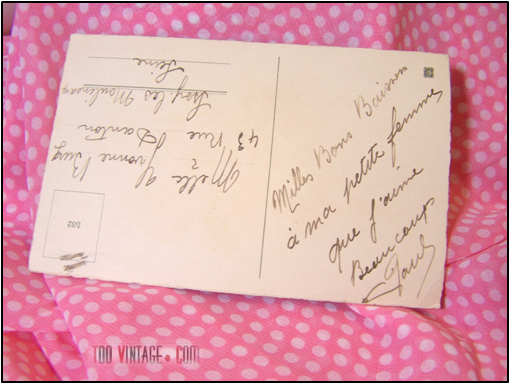 Milles Bons Baisers
à ma petite femme
que j'aime
Beaucoup
Paul
Melle Yvonne
43 rue Danton
Issy les Moulineaux
Seine
TOO VINTAGE.COM